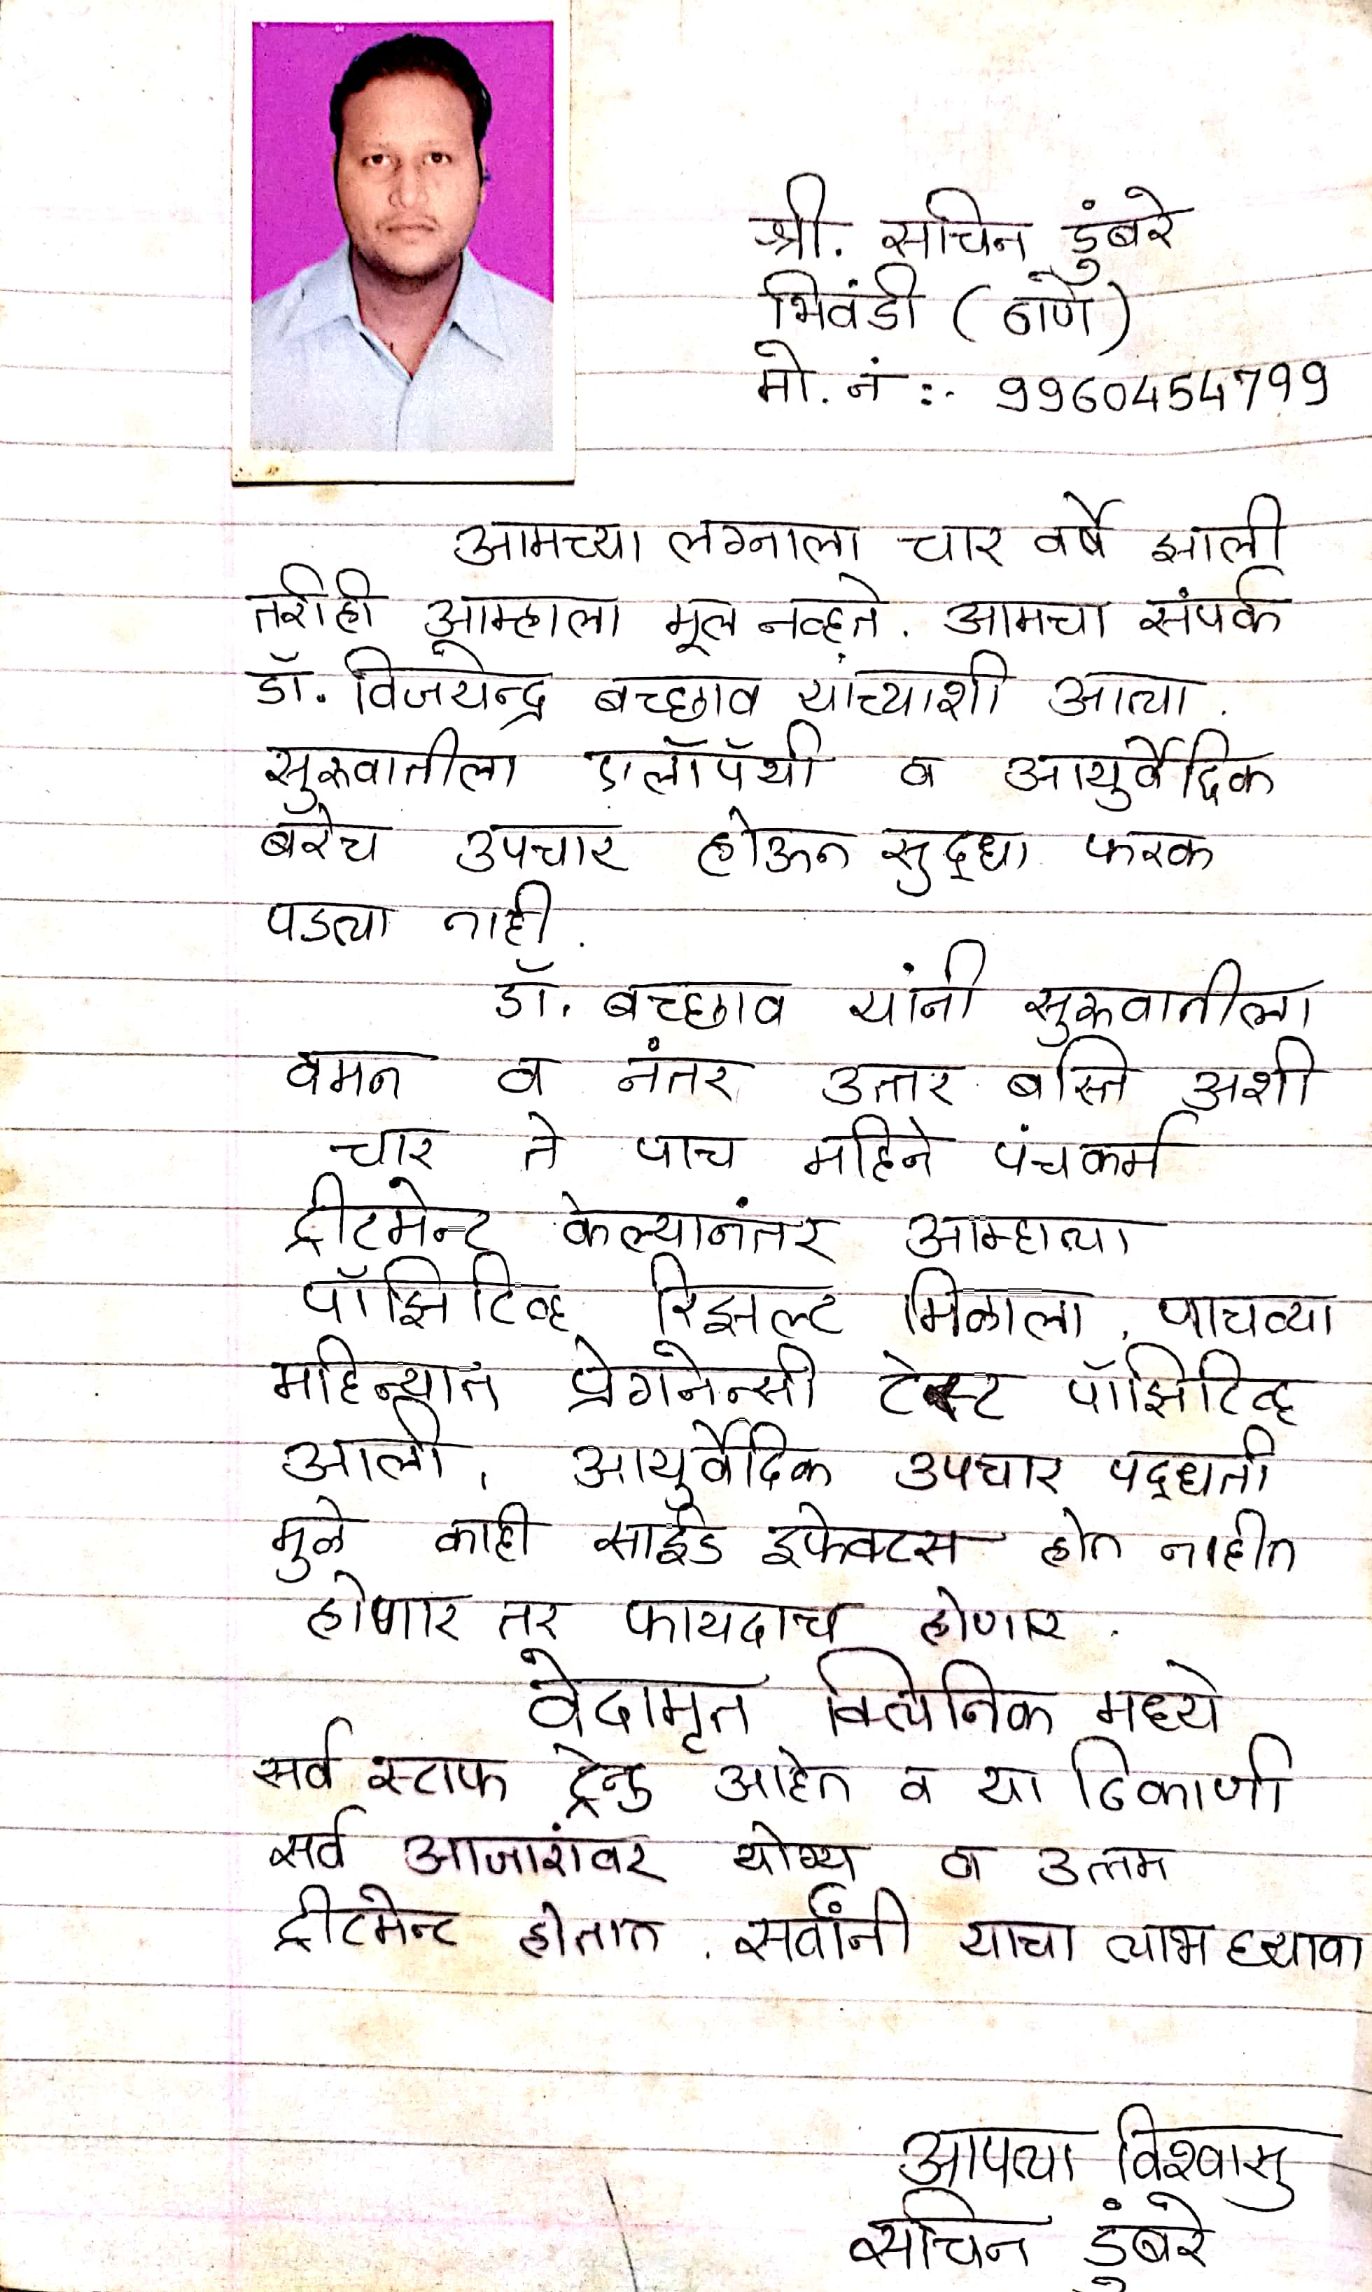 श्री. सचिन डुंबरे
भिवंडी (ठाणे)
मो. नं :- 9960454799
आमच्या लग्नाला चार वर्षे झाली
तरीही आम्हाला मूल नव्हते. आमचा संपर्क
डॉ. विजयेन्द्र बच्छाव यांच्याशी आला.
सुरुवातीला एलॉपॅथी व आयुर्वेदिक
बरेच उपचार होऊन सुद्धा फरक
पडला नाही.
डॉ. बच्छाव यांनी सुरुवातीला
वमन व नंतर उत्तर बस्ति अशी
चार ते पाच महिने पंचकर्म
ट्रीटमेन्ट केल्यानंतर आम्हाला
पॉझिटिव्ह रिझल्ट मिळाला. पाचव्या
महिन्यात प्रेगनेन्सी टेस्ट पॉझिटिव्ह
आली. आयुर्वेदिक उपचार पद्धती
मुळे काही साईड इफेक्टस होत नाहीत
होणार तर फायदाच होणार.
वेदामृत क्लिनिक मध्ये
सर्व स्टाफ ट्रेन्ड आहेत व या ठिकाणी
सर्व आजारांवर योग्य व उत्तम
ट्रीटमेन्ट होतात. सर्वांनी याचा लाभ घ्यावा
आपला विश्वासु
सचिन डुंबरे